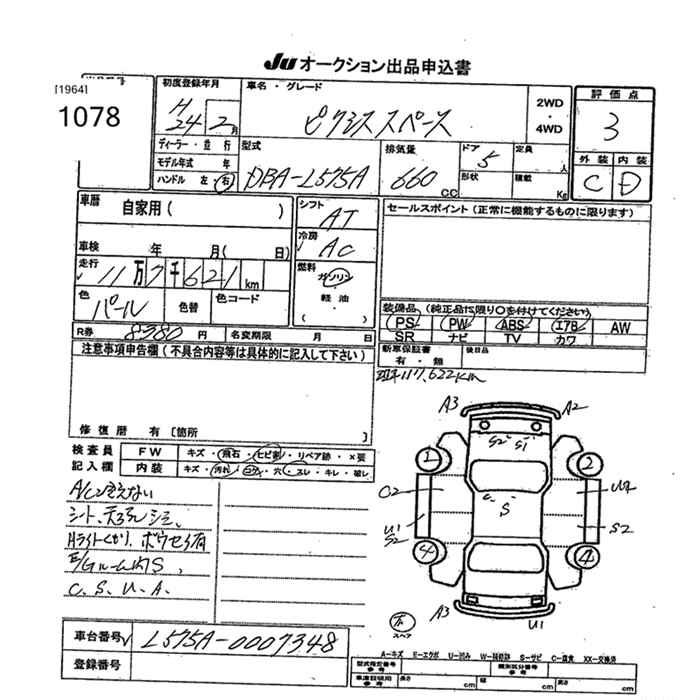 JU オークション出品申込書
[1964]
1078
初度登録年月
H24年 2月
車名・グレード
ピクシススペース
2WD
・
4WD
評価点
3
外装 内装
C D
ディーラー・並行
モデル年式 年
ハンドル 左・右
型式
DBA-L575A
排気量
660 CC
ドア 5
形状
定員 人
積載 Kg
車歴 自家用( )
車検 年 月( 日)
走行 11万7千621 km
色 パール
色替
色コード
R券 8380 円 名変期限 月 日
シフト AT
冷房 AC
燃料
ガソリン
軽油
セールスポイント(正常に機能するものに限ります)
装備品(純正品に限り○を付けてください)
PS PW ABS エアB AW
SR ナビ TV カワ
新車保証書
有・無
後日品
注意事項申告欄(不具合内容等は具体的に記入して下さい)
修復歴 有〔箇所 〕
117,622km
検査員
記入欄
FW キズ・飛石・ヒビ割・リペア跡・×要
内装 キズ・汚れ・コゲ・穴・スレ・キレ・破レ
シート、天張シミ、
Hライトくもり、
E/GルームS、
C. S. U. A.
A3 A2
S2 S1
1 2
C2 U2
S
U1
S2 S2
4 4
A3 U1
スペア
車台番号 L575A-0007348
登録番号
A-キズ E-エクボ U-凹み W-補修跡 S-サビ C-腐食 XX-交換済
型式指定番号
参考
類別区分番号
参考
車庫証明用
参考
長さ cm 幅 cm 高さ cm